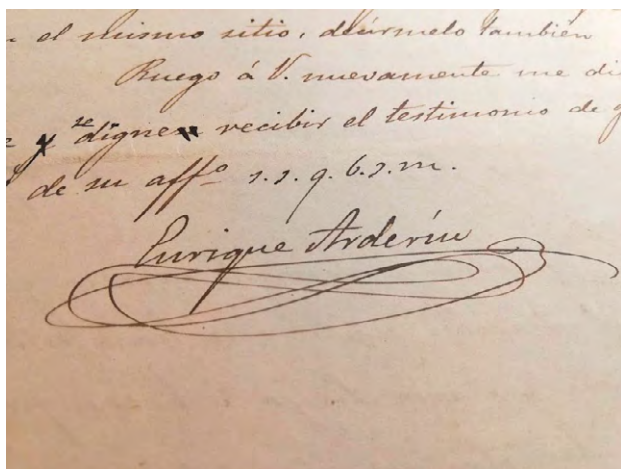 el mismo sitio, decírmelo también
Ruego á V. nuevamente me di
y se digne recibir el testimonio de g
de su affº s.s.q.b.s.m.
Enrique Arderíu